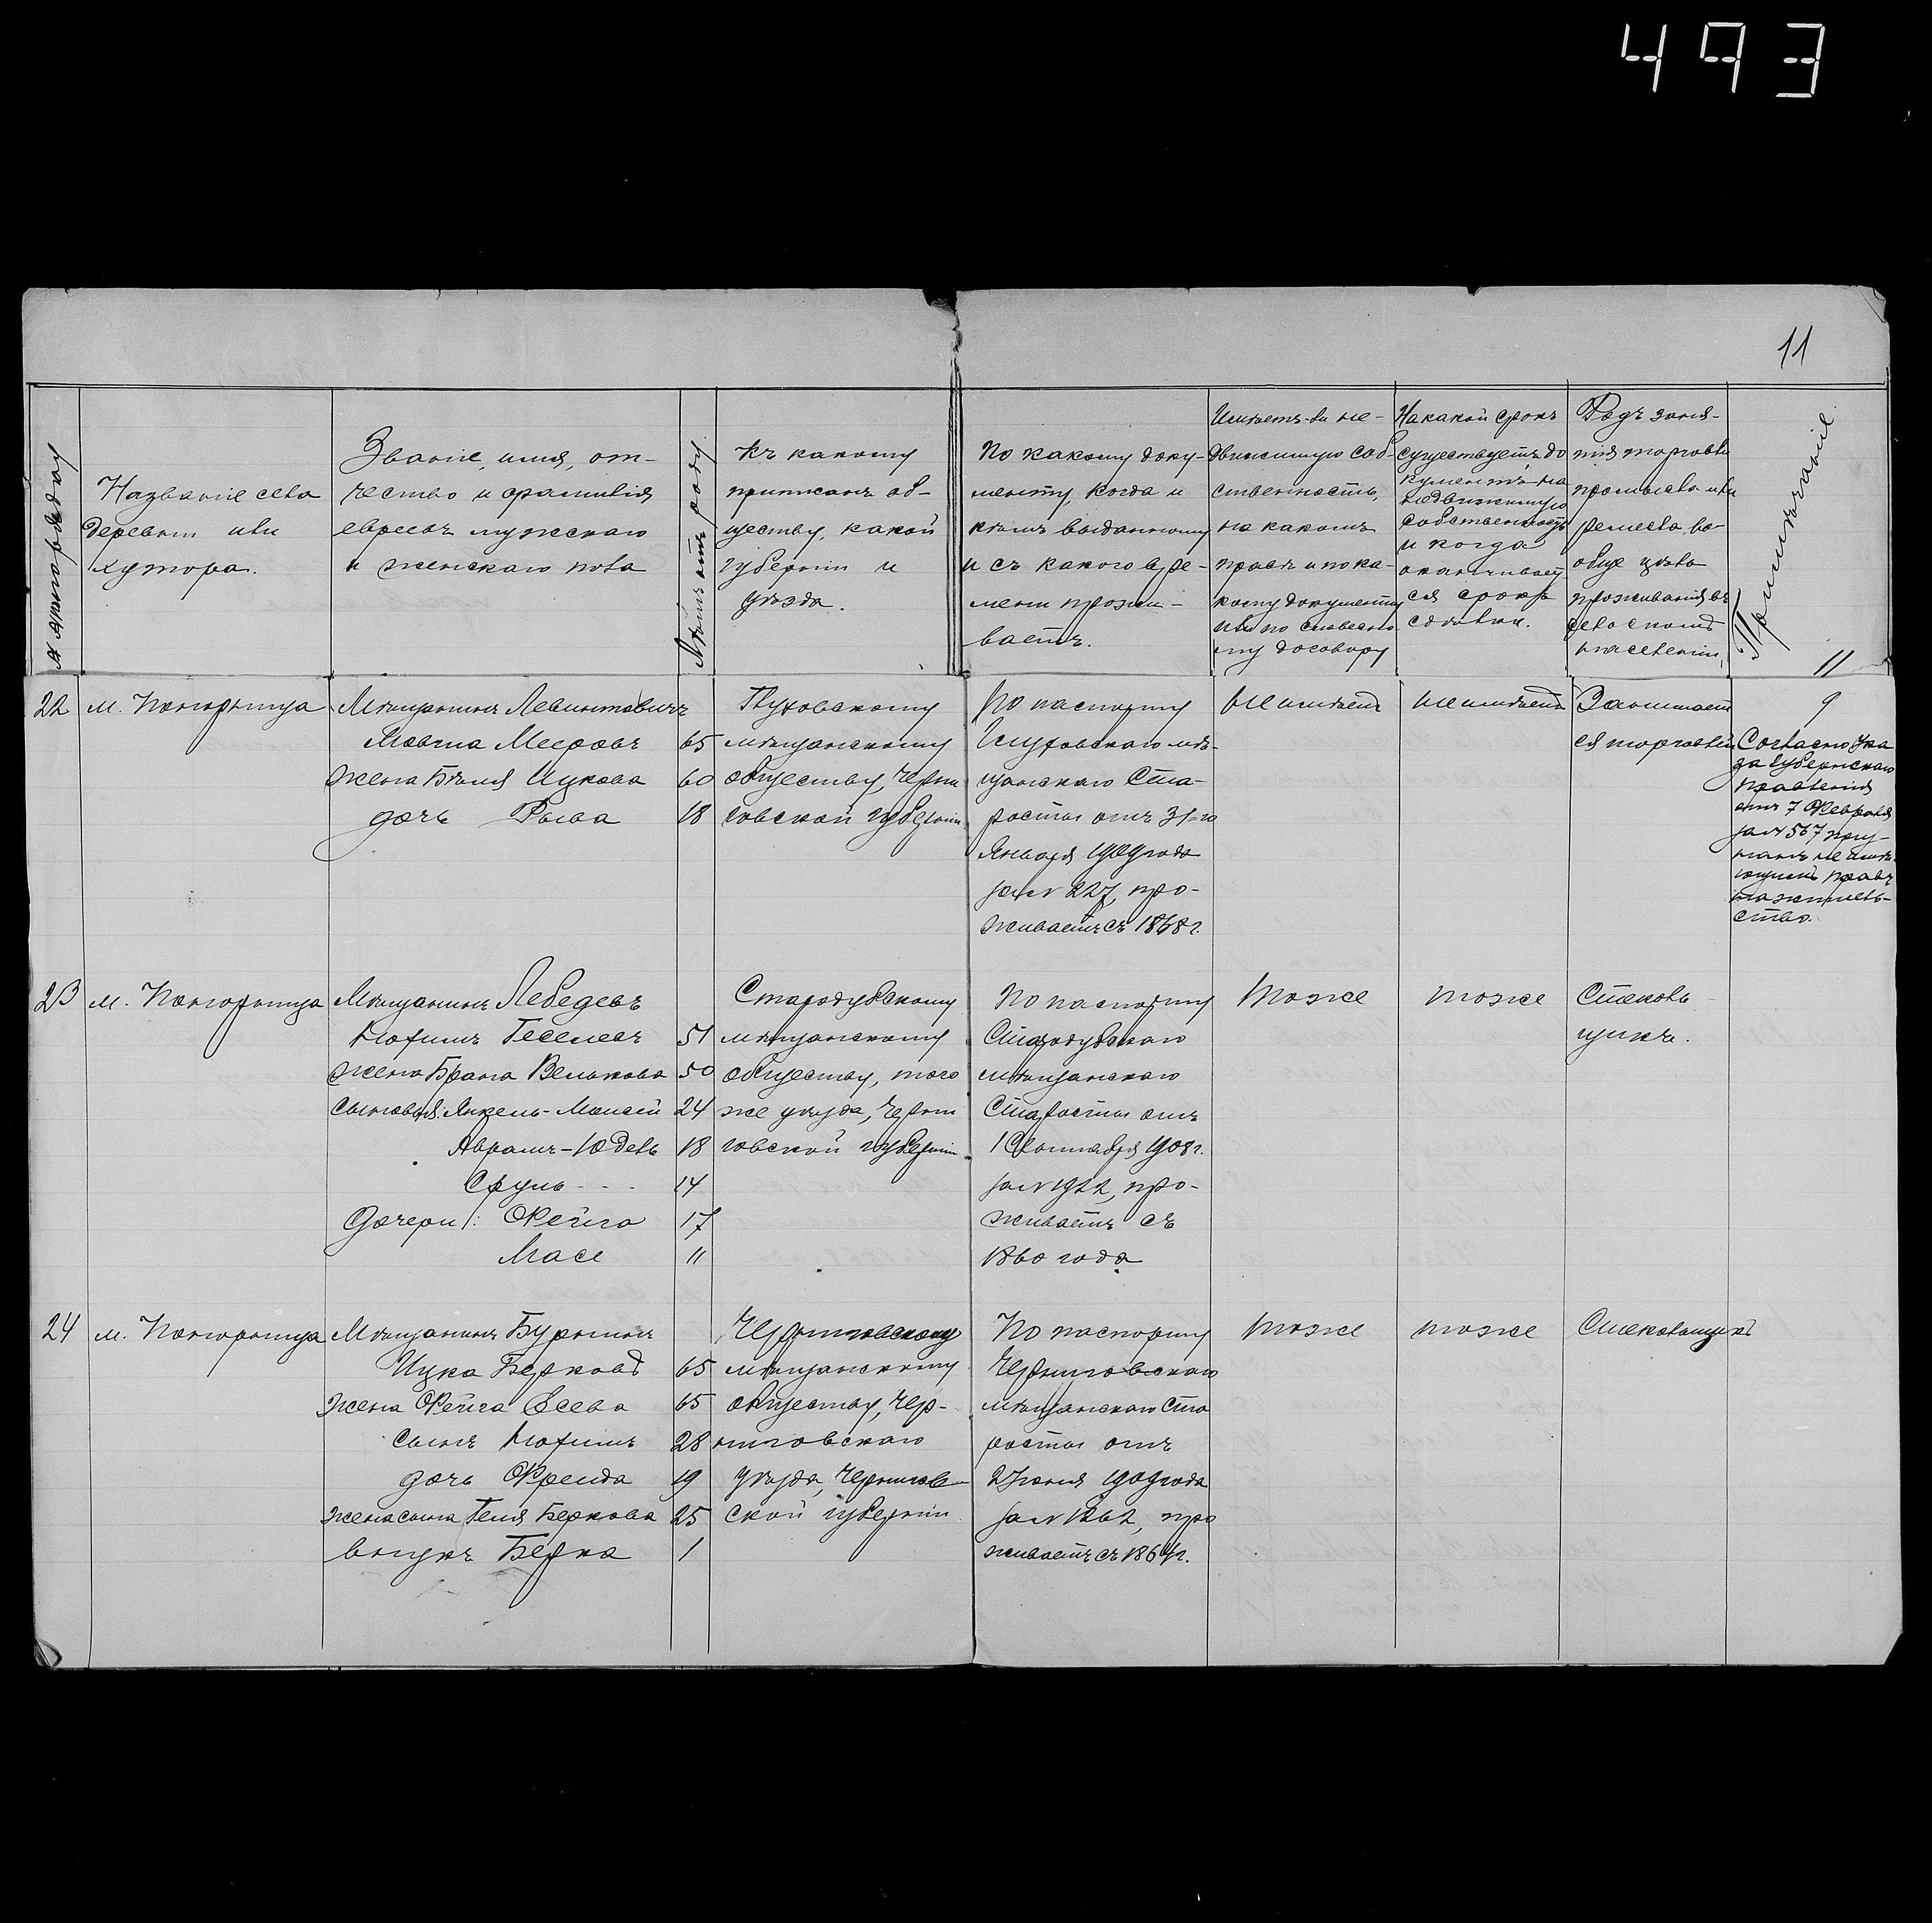 493
11
№ по порядку
Названіе села
деревни или
хутора.
Званіе, имя, от-
чество и фамилія
евреевъ мужскаго
и женскаго пола
Лѣтъ отъ роду
Къ какому
приписанъ об-
ществу, какой
губерніи и
уѣзда.
По какому доку-
менту, когда и
кѣмъ выданному
и съ какого вре-
мени прожи-
ваетъ.
Имѣетъ-ли не-
движимую соб-
ственность,
на какомъ
правѣ и по ка-
кому документу
или по словесно-
му договору
На какой срокъ
существуетъ до
кументъ на
недвижимую
собственность
и когда
оканчивает
ся срокъ
Родъ заня-
тія торговли
промысла или
ремесла, во-
обще цѣль
проживанія въ
сельскомъ
населеніи.
Примѣчаніе
11
22
м. Понорница
Мѣщанинъ Левинтовичъ
Мееровъ 65
жена Бѣля Ицкова 60
дочь 18
Глуховскому
мѣщанскому
обществу, Черни
говской губерніи
По паспорту
Глуховскаго мѣ-
щанскаго Ста-
росты отъ 31-го
Января 1909 года
за № 227, про-
живаетъ съ 1868 г.
не имѣетъ
не имѣетъ
Занимает
ся торговлей
9
Согласно Ука
за Губернскаго
Правленія
отъ 7 Февраля
за № 567 приз-
нанъ не имѣ-
ющимъ права
на житель-
ство.
23
м. Понорница
Мѣщанинъ Лебедевъ
Нохимъ 51
жена Брана Велькова 50
сыновья: Янкель-Моисей 24
Абрамъ-Юдель 18
Сруль 14
дочери: Фейга 17
Мася 11
Стародубскому
мѣщанскому
обществу, того
же уѣзда, Черни
говской губерніи
По паспорту
Стародубскаго
мѣщанскаго
Старосты отъ
1 Сентября 1908 г.
за № 1922, про-
живаетъ съ
1860 года
тоже
тоже
Стеколь
щикъ.
24
м. Понорница
Мѣщанинъ Бурминъ
Ицка Берковъ 65
жена Фейга 65
сынъ Нохимъ 28
дочь Фрейда 19
жена сына Геня Беркова 25
внукъ Берка 1
Черниговскому
мѣщанскому
обществу, Чер-
ниговскаго
уѣзда, Чернигов-
ской губерніи
По паспорту
Черниговскаго
мѣщанскаго Ста
росты отъ
2 Іюня 1909 года
за № 1262, про
живаетъ съ 1864 г.
тоже
тоже
Стекольщикъ